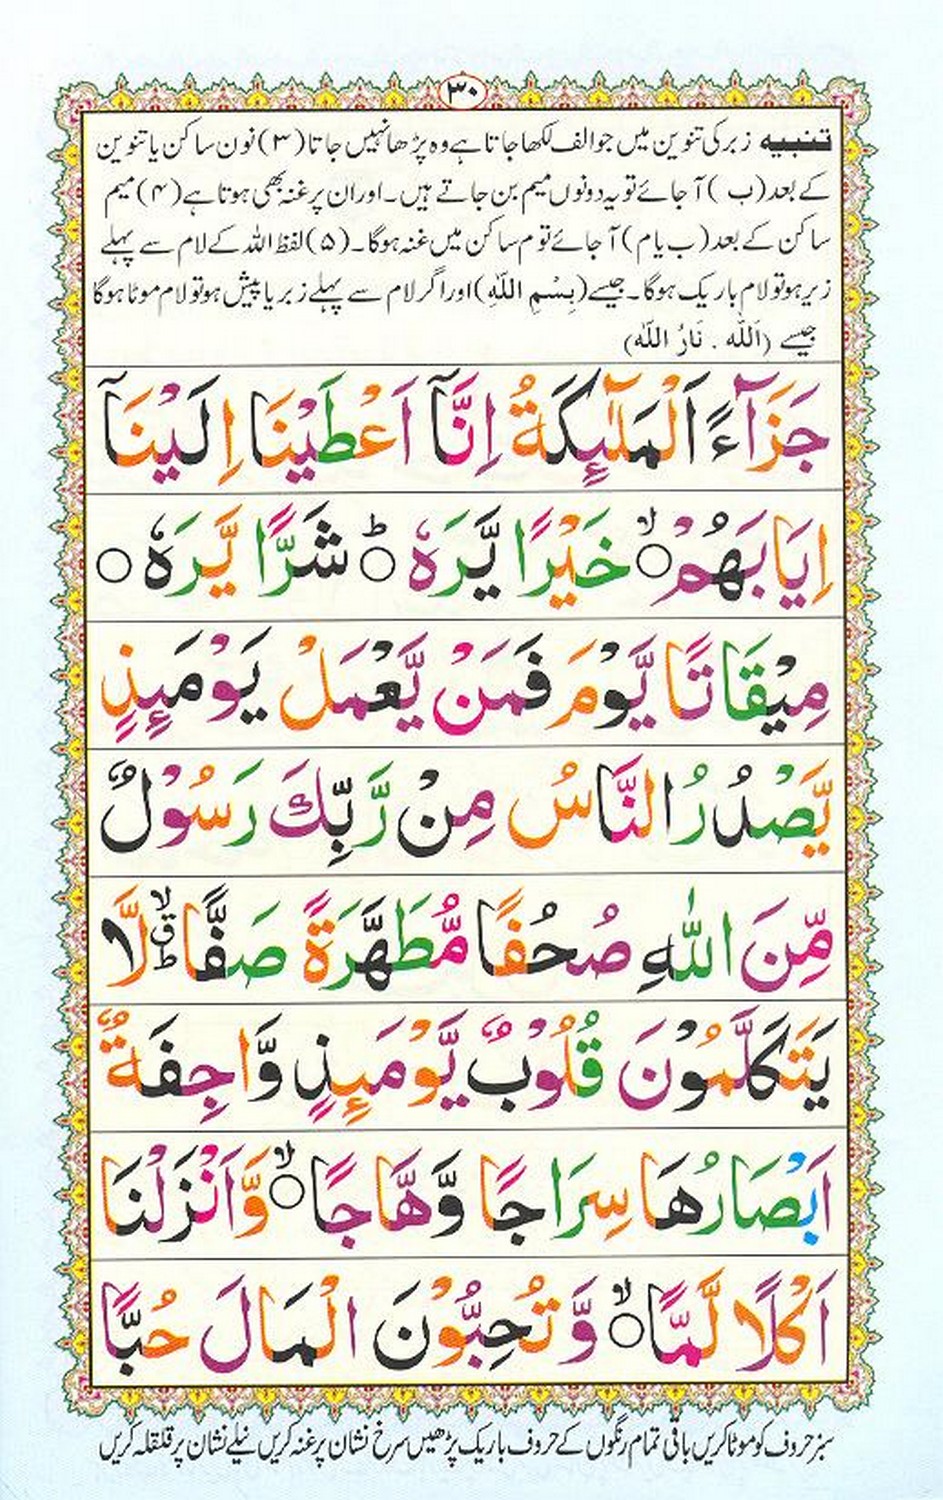 ۳۰
تنبیہ زبر کی تنوین میں جو الف لکھا جاتا ہے وہ پڑھا نہیں جاتا (۳) نون ساکن یا تنوین
کے بعد (ب) آ جائے تو یہ دونوں میم بن جاتے ہیں۔ اور ان پر غنہ بھی ہوتا ہے (۴) میم
ساکن کے بعد (ب یا م) آ جائے تو م ساکن میں غنہ ہوگا۔ (۵) لفظ اللہ کے لام سے پہلے
زیر ہو تو لام باریک ہوگا۔ جیسے (بِسْمِ اللّٰهِ) اور اگر لام سے پہلے زبر یا پیش ہو تو لام موٹا ہوگا
جیسے (اَللّٰه . نَارُ اللّٰه)
جَزَآءً اَلْمَلٰٓئِكَةُ اِنَّآ اَعْطَيْنَا اِلَيْنَآ
اِيَابَهُمْ ۙ○ خَيْرًا يَّرَهٗ ○ؕ شَرًّا يَّرَهٗ ○
مِيْقَاتًا يَّوْمَ فَمَنْ يَّعْمَلْ يَوْمَئِذٍ
يَّصْدُرُ النَّاسُ مِنْ رَّبِّكَ رَسُوْلٌ
مِّنَ اللّٰهِ صُحُفًا مُّطَهَّرَةً صَفًّا ۙق ط لَّا
يَتَكَلَّمُوْنَ قُلُوْبٌ يَّوْمَئِذٍ وَّاجِفَةٌ
اَبْصَارُهَا سِرَاجًا وَّهَّاجًا ۙ○ وَّاَنْزَلْنَا
اَكْلًا لَّمًّا ۙ○ وَّ تُحِبُّوْنَ الْمَالَ حُبًّا
سبز حروف کو موٹا کریں باقی تمام رنگوں کے حروف باریک پڑھیں سرخ نشان پر غنہ کریں نیلے نشان پر قلقلہ کریں